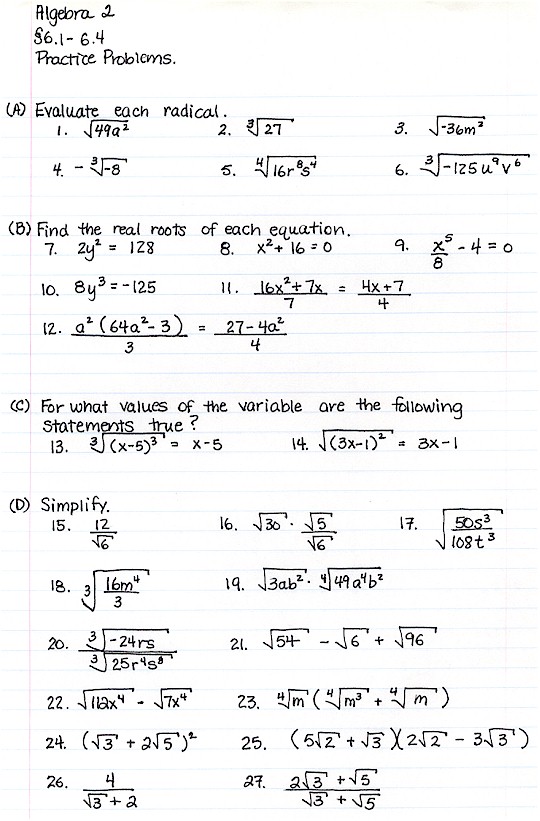 Algebra 2
§6.1 - 6.4
Practice Problems.
(A) Evaluate each radical.
1. √49a² 2. ∛27 3. √-36m²
4. -∛-8 5. ∜16r⁸s⁴ 6. ∛-125u⁹v⁶
(B) Find the real roots of each equation.
7. 2y² = 128 8. x² + 16 = 0 9. x⁵/8 - 4 = 0
10. 8y³ = -125 11. (16x² + 7x)/7 = (4x + 7)/4
12. a²(64a² - 3)/3 = (27 - 4a²)/4
(C) For what values of the variable are the following
statements true?
13. ∛(x-5)³ = x-5 14. √(3x-1)² = 3x-1
(D) Simplify.
15. 12/√6 16. √30 · √5/√6 17. √(50s³/108t³)
18. ∛(16m⁴/3) 19. √3ab² · ∜49a⁴b²
20. ∛-24rs/∛25r⁴s⁸ 21. √54 - √6 + √96
22. √112x⁴ - √7x⁴ 23. ∜m (∜m³ + ∜m)
24. (√3 + 2√5)² 25. (5√2 + √3)(2√2 - 3√3)
26. 4/(√3 + 2) 27. (2√3 + √5)/(√3 + √5)